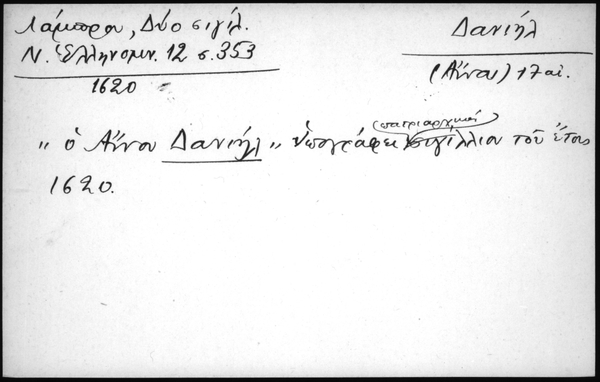 Λάμπρου, Δύο σιγίλ.
Ν. Ἑλληνομν. 12 σ. 353
1620
Δανιήλ
(Αἴνου) 17 αἰ.
"ὁ Αἴνου Δανιήλ" ὑπογράφει (πατριαρχικὸν) σιγίλλιον τοῦ ἔτους
1620.